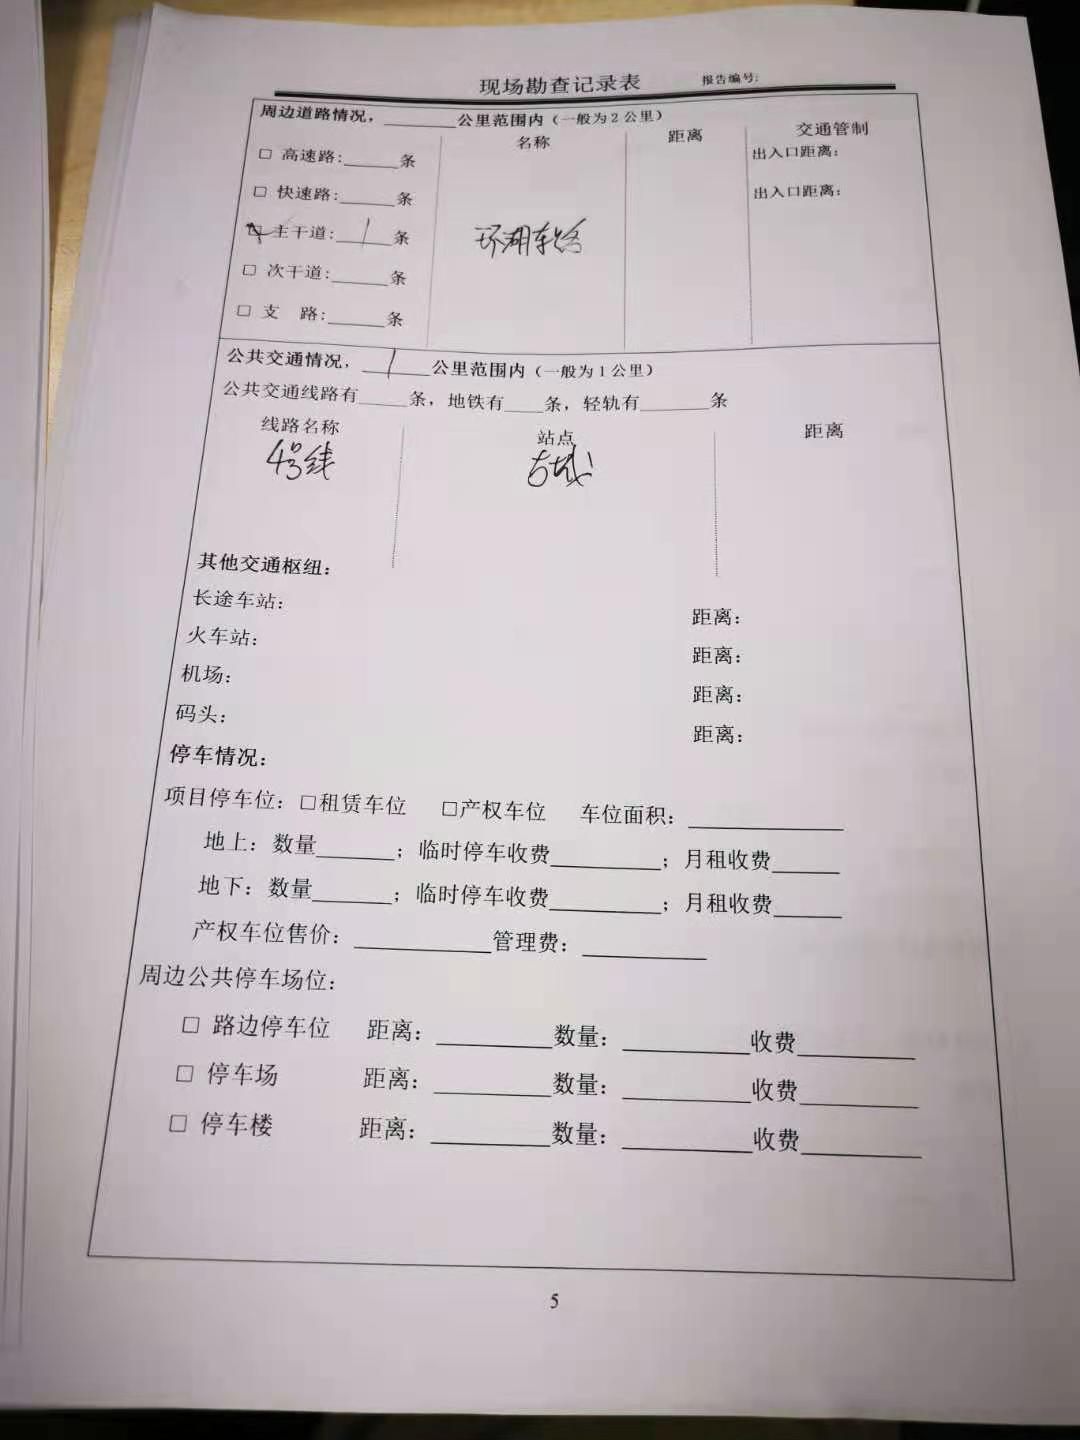 现场勘查记录表 报告编号:
周边道路情况，______公里范围内（一般为2公里）
名称 距离 交通管制
□ 高速路:_____条 出入口距离：
□ 快速路:_____条 出入口距离：
☑ 主干道:__1__条 环湖东路
□ 次干道:_____条
□ 支 路:_____条
公共交通情况，__1__公里范围内（一般为1公里）
公共交通线路有____条，地铁有___条，轻轨有_____条
线路名称 站点 距离
4号线 古城
其他交通枢纽：
长途车站： 距离：
火车站： 距离：
机场： 距离：
码头： 距离：
停车情况：
项目停车位：□租赁车位 □产权车位 车位面积：____________
地上：数量______；临时停车收费________；月租收费_____
地下：数量______；临时停车收费________；月租收费_____
产权车位售价：__________管理费：_________
周边公共停车场位：
□ 路边停车位 距离：________数量：_________收费________
□ 停车场 距离：________数量：_________收费________
□ 停车楼 距离：________数量：_________收费________
5